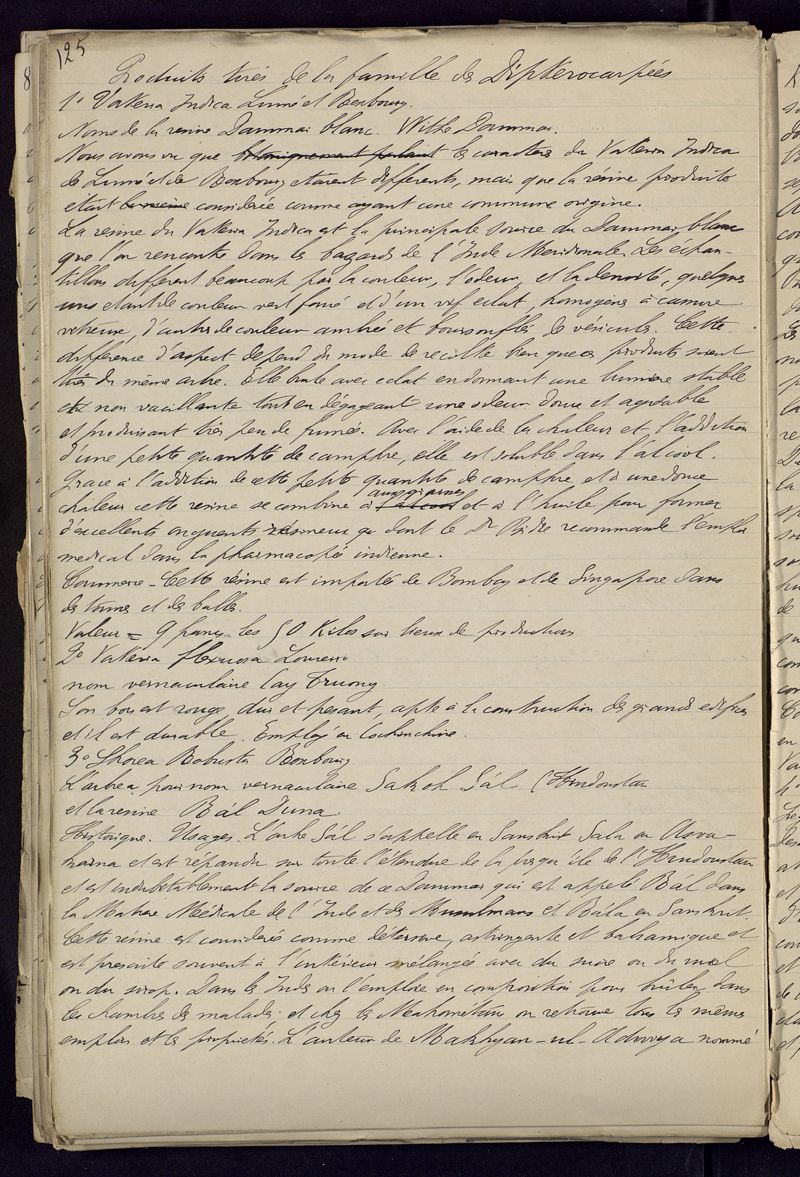 125
Produits tirés de la famille des Dipterocarpées
1° Vateria Indica Linné et Boxbourg.
Noms de la résine Dammar blanc. With Dammar.
Nous avons vu que botaniquement parlant les caractères du Vateria Indica
de Linné et de Boxbourg étaient différents, mais que la résine produite
était la même considérée comme ayant une commune origine.
La résine du Vateria Indica est la principale source du Dammar blanc
que l'on rencontre dans les bazards de l'Inde Meridionale. Les échan-
tillons different beaucoup par la couleur, l'odeur, et la densité, quelques
uns étant de couleur vert foncé et d'un vif éclat, homogène à cassure
vitreuse, d'autres de couleur ambrée et boursouflés de vésicules. Cette
difference d'aspect depend du mode de recolte bien que ces produits soient
tirés du même arbre. Elle brule avec eclat en donnant une lumière stable
et non vacillante tout en dégageant une odeur douce et agréable
et produisant très peu de fumée. Avec l'aide de la chaleur et l'addition
d'une petite quantité de camphre, elle est soluble dans l'alcool.
Grace à l'addition de cette petite quantité de camphre et à une douce
chaleur cette résine se combine à l'alcool aux graisses et à l'huile pour former
d'excellents onguents résineux dont le Dr Bidie recommande l'emploi
medical dans la pharmacopée indienne.
Commerce - Cette résine est importée de Bombay et de Singapore dans
des tonnes et des balles.
Valeur = 9 francs les 50 Kilos sur lieux de production
2° Vateria flexuosa Loureiro
nom vernaculaire Cay Truong
Son bois est rouge, dur et pesant, apte à la construction des grands edifices
et il est durable. Employé en Cochinchine.
3° Shorea Robusta Boxbourg
L'arbre a pour nom vernaculaire Sakoh Sál (Hindoustan
et la résine Bál Duna.
Historique. Usages. L'arbre Sál s'appelle en Sanskrit Sala ou Asva-
karna et est repandu sur toute l'étendue de la presqu'ile de l'Hindoustan
et est indubitablement la source de ce Dammar qui est appelé Bál dans
la Matiere Médicale de l'Inde et des Musulmans et Bála en Sanskrit.
Cette résine est considérée comme détersive, astringente et balsamique et
est prescrite souvent à l'intérieur mélangée avec du sucre ou du miel
ou du sirop. Dans les Indes on l'emploie en composition pour brûler dans
les chambres de malades et chez les Mahométans on retrouve tous les mêmes
emplois et les propriétés. L'auteur de Makhzan-ul-Adwiya nommé